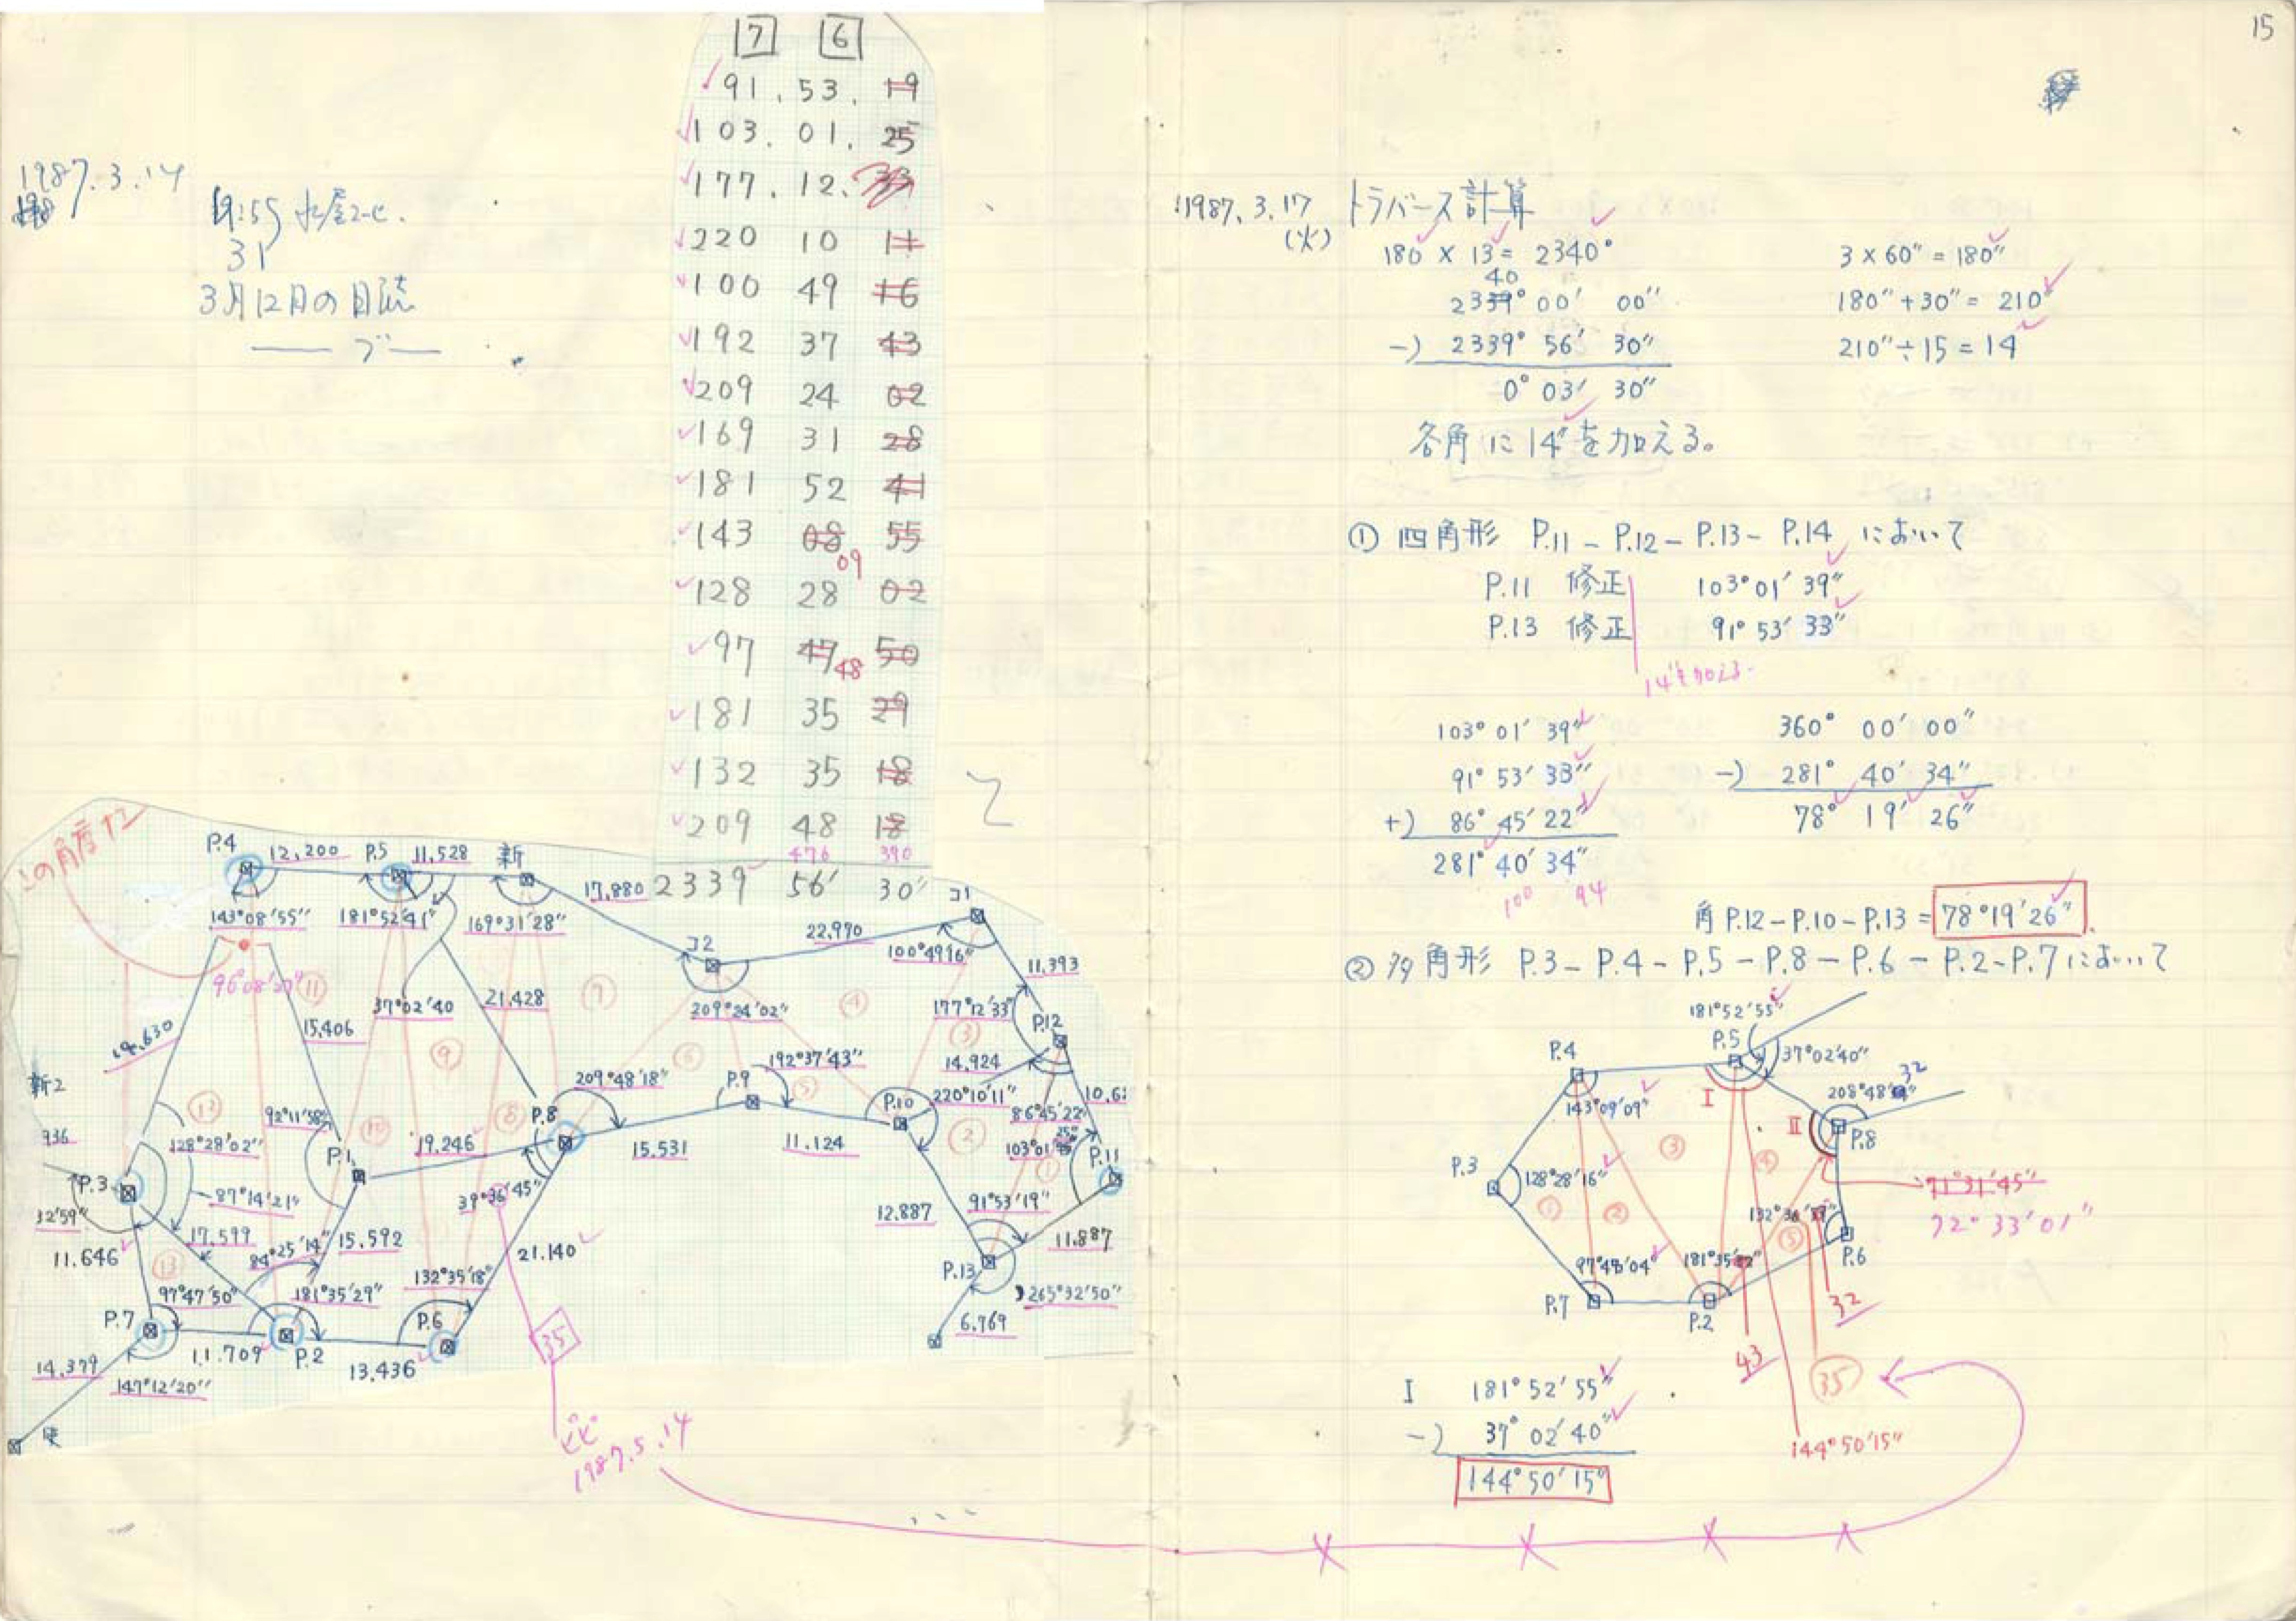 15
7 6
91. 53. 19
103. 01. 25
177. 12. 33
220 10 11
100 49 16
192 37 43
209 24 02
169 31 28
181 52 41
143 08 55
09
128 28 02
97 47 50
48
181 35 29
132 35 18
209 48 18
476 390
2339 56′ 30″
1987.3.14
31
3月12日の日誌
この角度
P.4
12,200
P.5
11,528
新
17.880
コ1
143°08′55″
181°52′41″
169°31′28″
コ2
22,970
100°49′16″
11,393
96°08′27″
⑪
37°02′40
21,428
⑦
209°24′02″
④
177°12′33″
③
P.12
15,406
⑨
⑥
192°37′43″
14,924
新2
209°48′18″
P.9
⑤
P.10
220°10′11″
86°45′22″
936
128°28′02″
92°11′58″
⑩
19,246
⑧
P.8
15.531
11.124
②
①
P.11
P.3
P.1
87°14′21″
39°36′45″
12.887
91°53′19″
32′59″
17,599
15,592
21.140
11.887
11.646
⑬
84°25′14″
132°35′18″
P.13
265°32′50″
97°47′50″
181°35′29″
P.7
P.6
6.769
14,379
11.709
P.2
13,436
35
147°12′20″
1987.5.14
1987.3.17 トラバース計算
(火)
180 × 13 = 2340°
3 × 60″ = 180″
40
2339° 00′ 00″
180″ + 30″ = 210″
−) 2339° 56′ 30″
210″ ÷ 15 = 14
0° 03′ 30″
各角に14″を加える。
① 四角形 P.11 – P.12 – P.13 – P.14 において
P.11 修正 103°01′39″
P.13 修正 91°53′33″
103° 01′ 39″
360° 00′ 00″
91° 53′ 33″
−) 281° 40′ 34″
+) 86° 45′ 22″
78° 19′ 26″
281° 40′ 34″
100 94
角 P.12 – P.10 – P.13 = 78°19′26″
② 多角形 P.3 – P.4 – P.5 – P.8 – P.6 – P.2 – P.7 において
181°52′55″
P.5
P.4
37°02′40″
32
I
143°09′09″
③
④
II
P.8
P.3
128°28′16″
71°31′45″
①
②
72°33′01″
⑤
P.6
97°48′04″
P.7
P.2
32
43
35
144°50′15″
I 181° 52′ 55″
−) 37° 02′ 40″
144° 50′ 15″